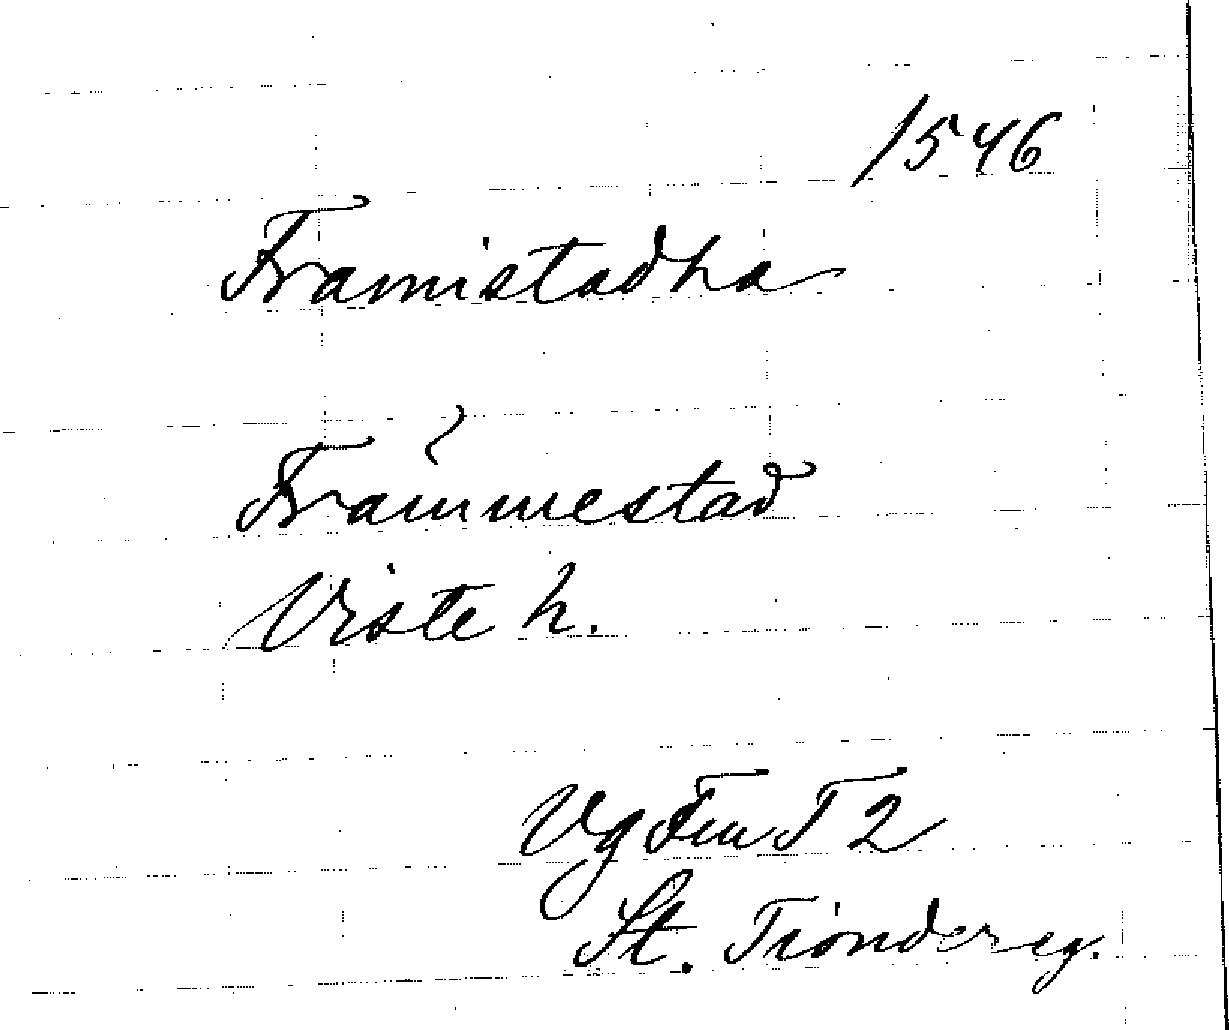 1546
Framistadha
Främmestad
Viste h.
Vg Fru T 2
St. Tiondereg.